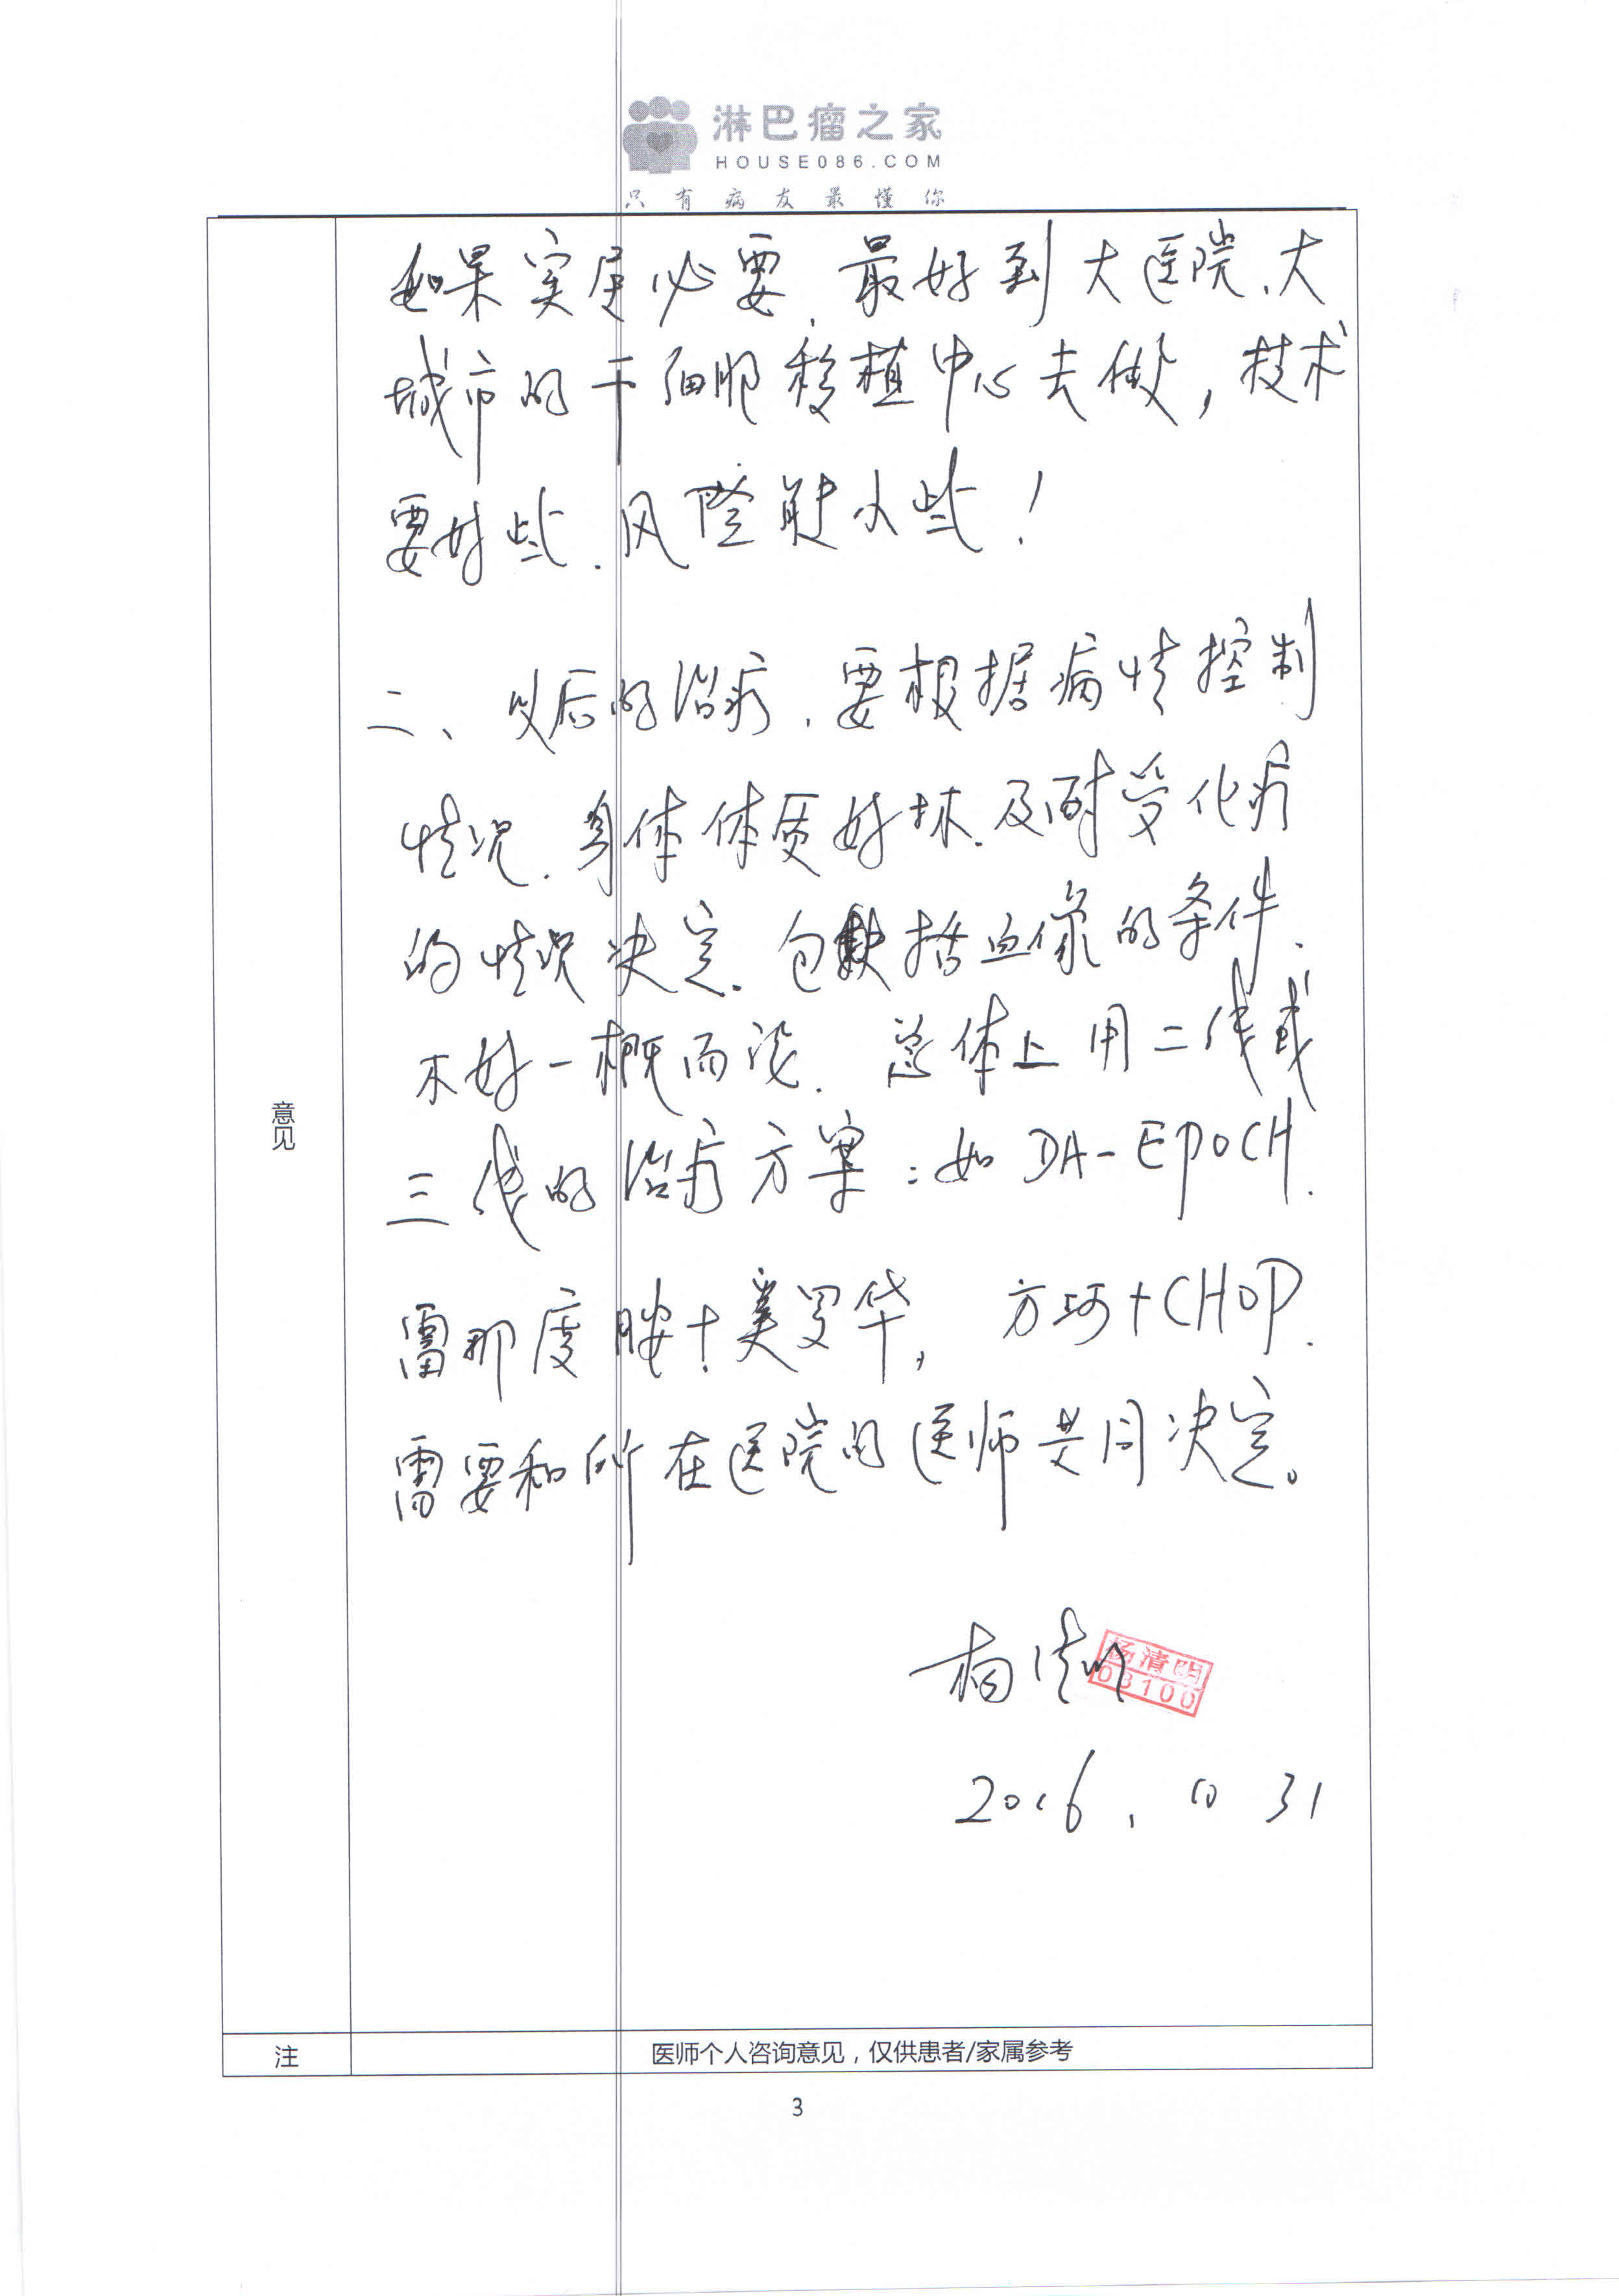 淋巴瘤之家
HOUSE086.COM
只有病友最懂你
如果实属必要，最好到大医院、大
城市的干细胞移植中心去做，技术
要好些．风险能小些！
二、以后的治疗，要根据病情控制
情况．身体体质好坏．及耐受化疗
的情况决定．包括血像的条件．
不好一概而论．总体上用二线或
三线的治疗方案：如DA-EPOCH．
雷那度胺＋美罗华， 方坷＋CHOP．
需要和所在医院的医师共同决定。
意见
杨清明
杨清明
03100
2016．10 31
注
医师个人咨询意见，仅供患者/家属参考
3